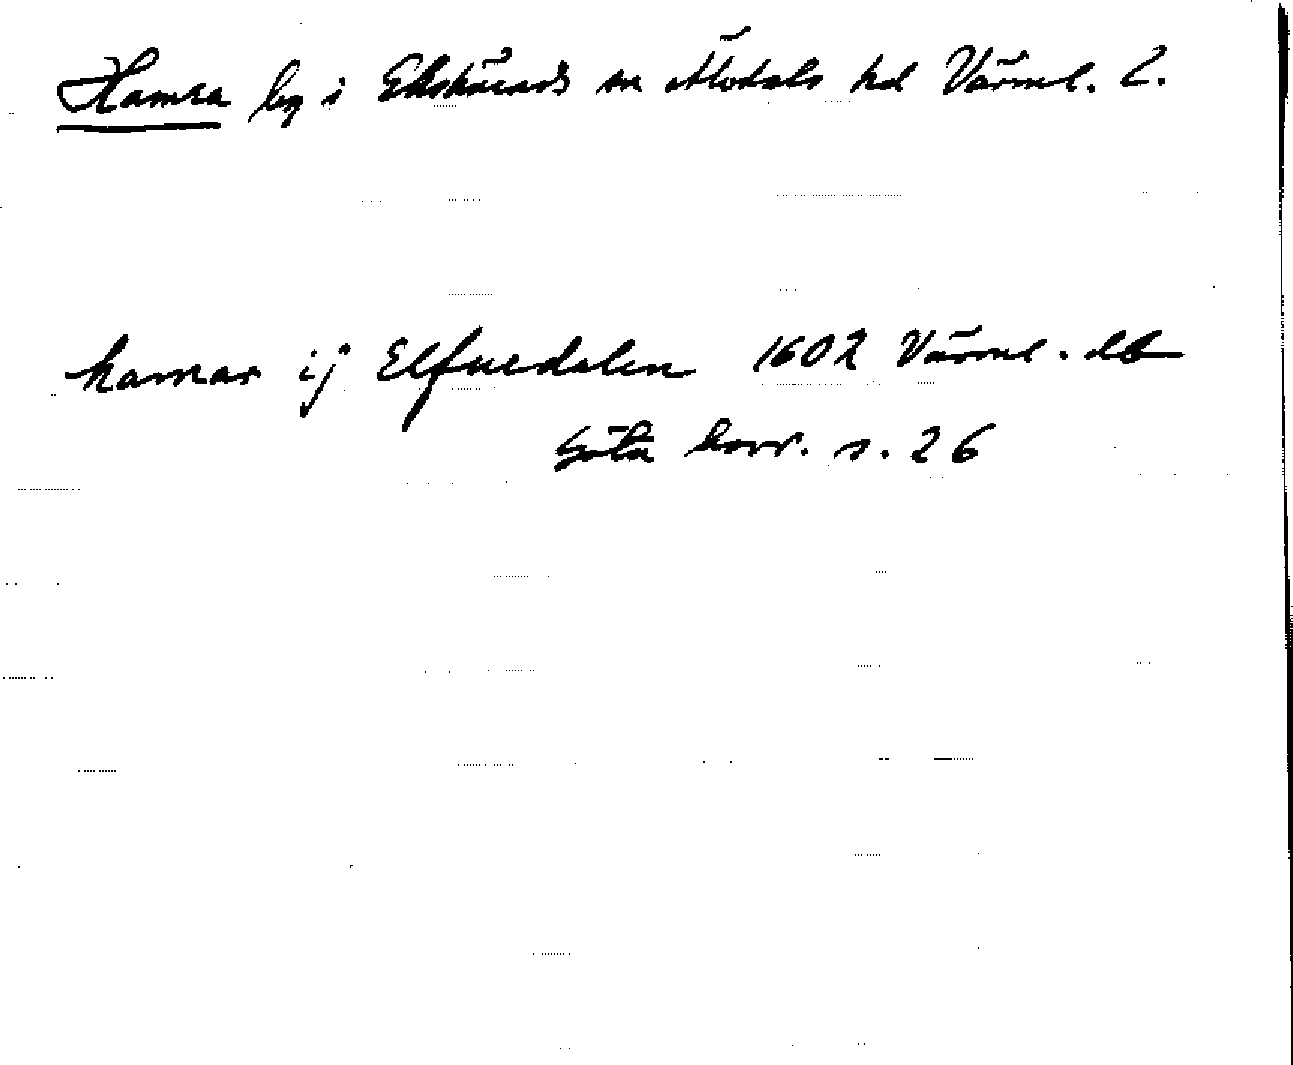 Hamra by i Ekshärads sn Älvdals hd Värml. l.
hamar ij Elfuedalen 1602 Värml. db
Göta hovr. s. 26